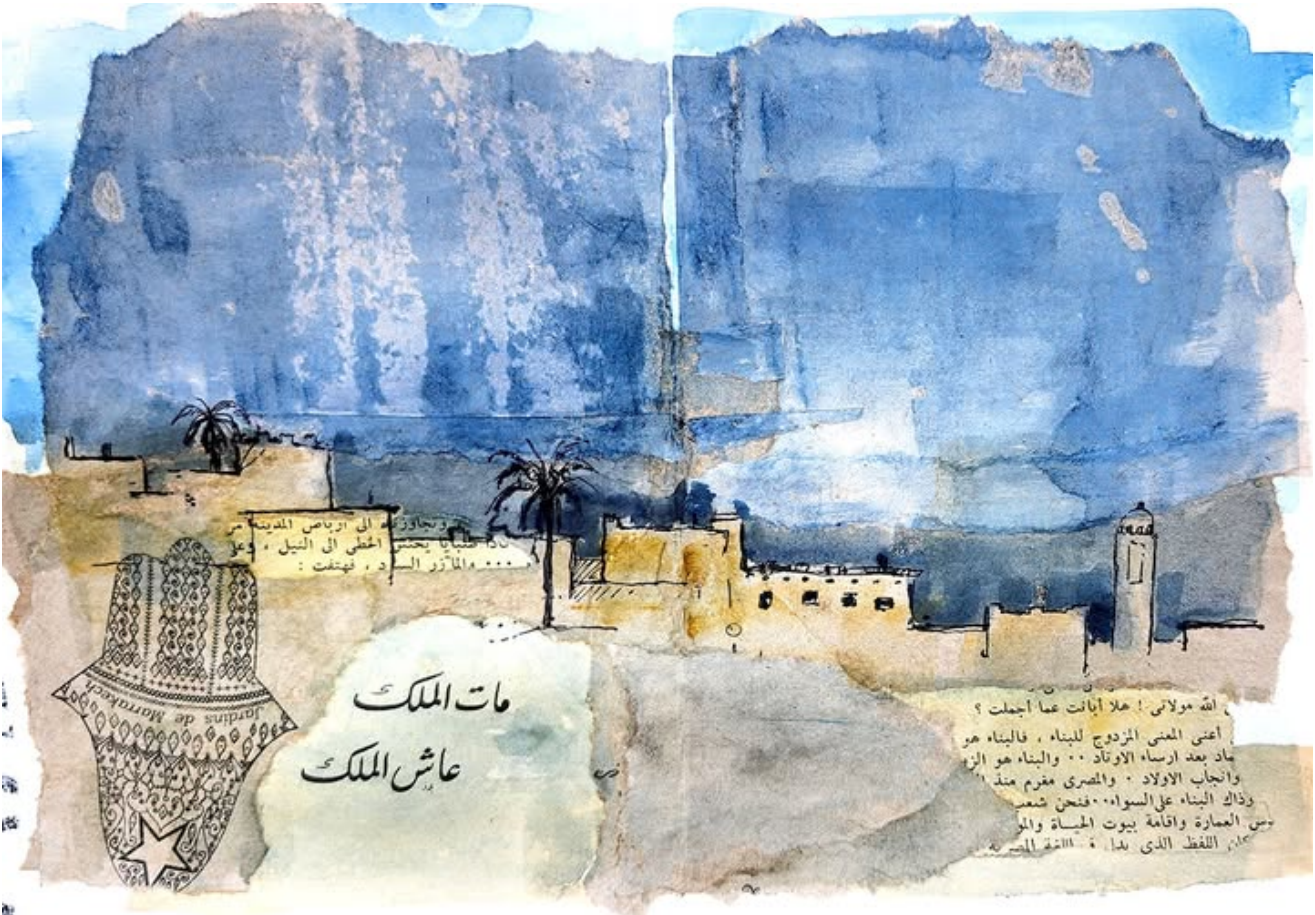 وتجاوزته الى ارباض المدينة
يحتسى الخطى الى النيل ، وعلى
فهتفت :
Jardins de Marrakech
مات الملك
عاش الملك
الله مولاتى ! هلا أبانت عما أجملت ؟
أعنى المعنى المزدوج للبناء ، فالبناء هو
بعد ارساء الاوتاد ٠٠ والبناء هو
وانجاب الاولاد ٠ والمصرى مغرم منذ
وذاك البناء على السواء٠٠فنحن شعب
العمارة واقامة بيوت الحياة
اللفظ الذى يدل فى اللغة المصرية